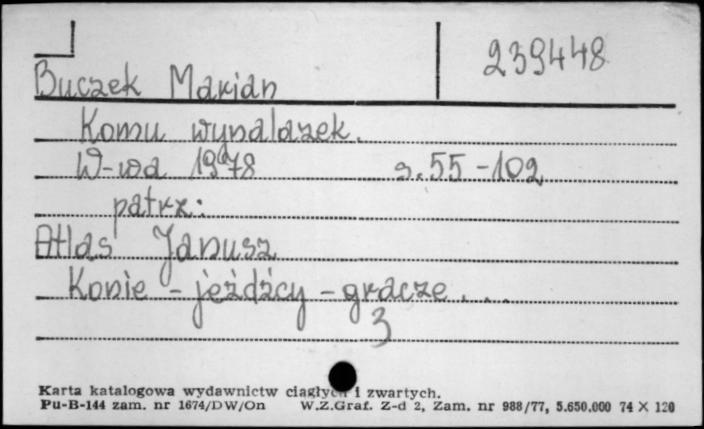 239448
Buczek Marian
Komu wynalazek.
W-wa 1978 s.55-102
patrz:
Atlas Janusz
Konie - jeźdźcy - gracze...
3
Karta katalogowa wydawnictw ciągłych i zwartych.
Pu-B-144 zam. nr 1674/DW/On W.Z.Graf. Z-d 2, Zam. nr 988/77, 5.650.000 74 X 120